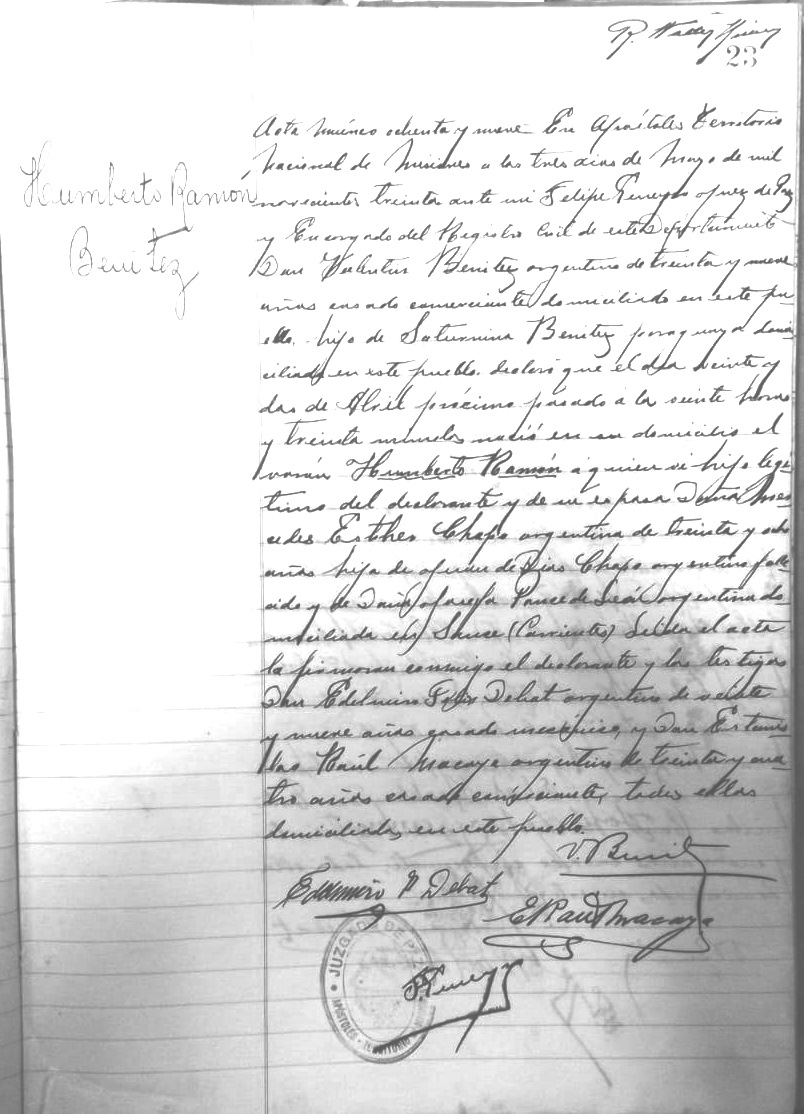 23
Humberto Ramón
Benitez
Acta número ochenta y nueve En Apóstoles Territorio
Nacional de Misiones a los tres dias de Mayo de mil
novecientos treinta ante mi Felipe Juez de Paz
y Encargado del Registro Civil de este Departamento
Don Valentin Benitez argentino de treinta y nueve
años casado comerciante domiciliado en este pue-
blo, hijo de Saturnina Benitez paraguaya domi-
ciliada en este pueblo. declaró que el dia veinte y
dos de Abril próximo pasado á la veinte horas
y treinta minutos nació en su domicilio el
varón Humberto Ramón á quien vi hijo legi-
timo del declarante y de su esposa Doña Mer-
cedes Esther Chapo argentina de treinta y ocho
años hija de Juan de Dios Chapo argentino falle-
cido y de Doña Josefa Ponce de León argentina do-
miciliada en Sauce (Corrientes) Leida el acta
la firmaron conmigo el declarante y los testigos
Don Edelmiro Debat argentino de veinte
y nueve años casado y Don Estanis-
lao Raúl Macaya argentino de treinta y cua-
tro años casado comerciante, todos ellos
domiciliados en este pueblo.
V. Benitez
Edelmiro F Debat
E Raul Macaya
JUZGADO DE PAZ
APOSTOLES - TERRITORIO